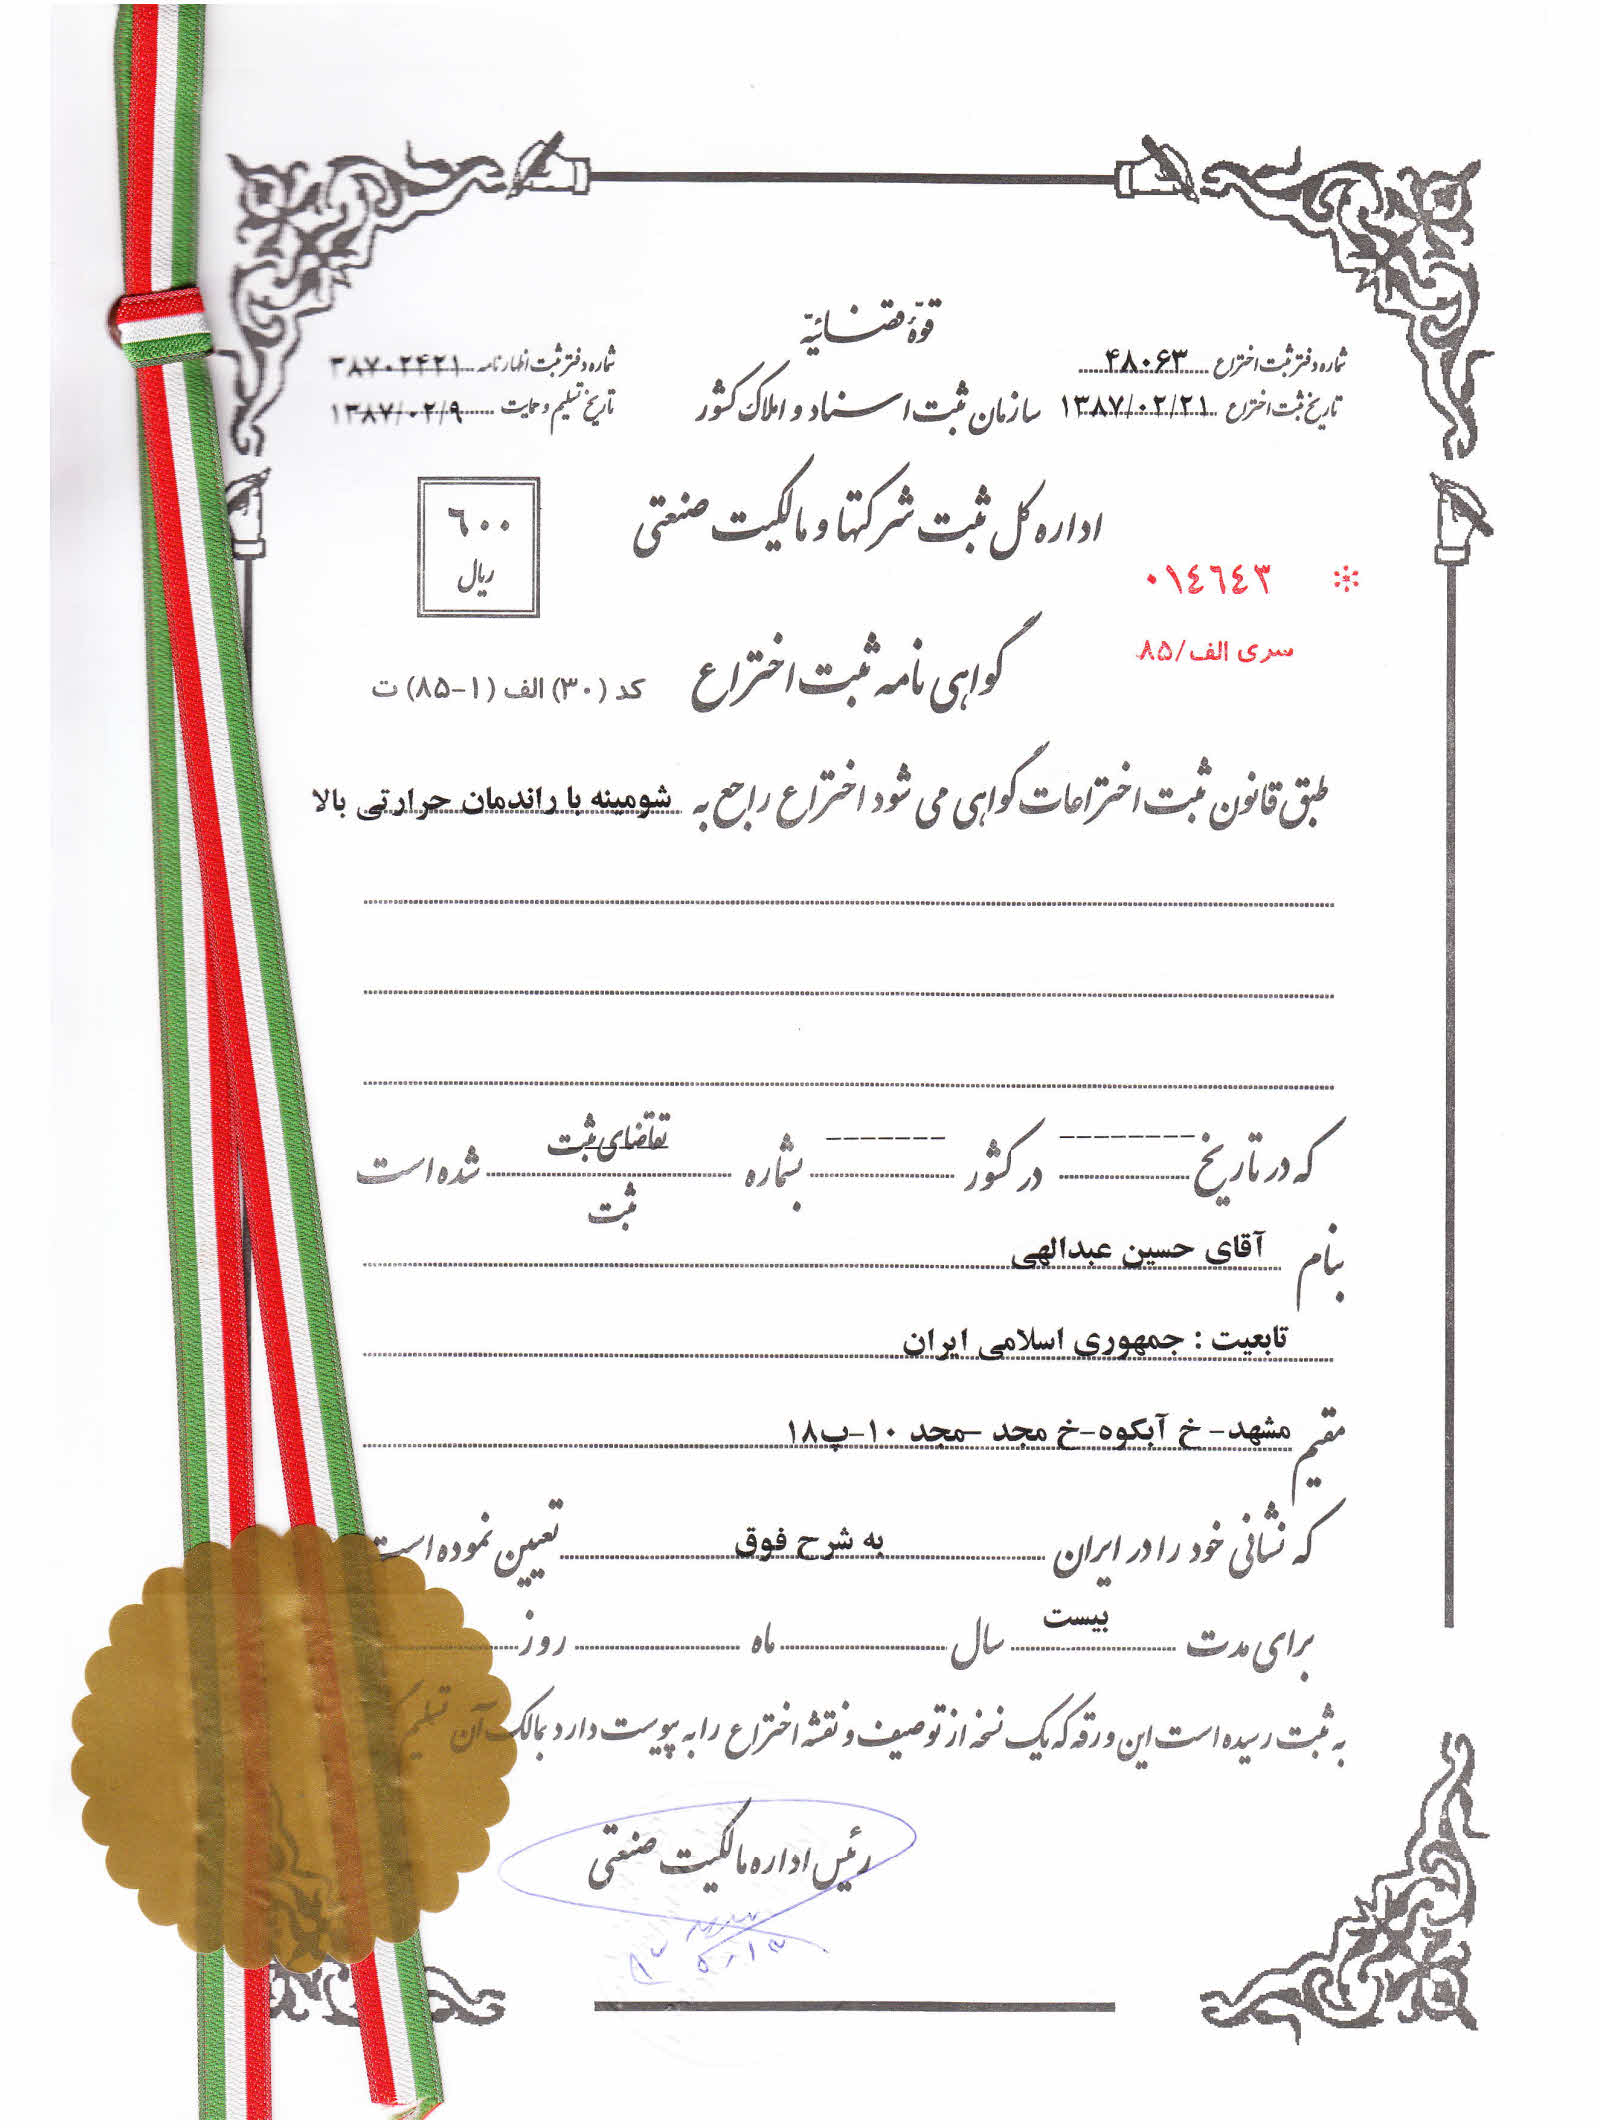 قوّهٔ قضائیّه
شماره دفتر ثبت اختراع ۴۸۰۶۳
شماره دفتر ثبت اظهارنامه ۳۸۷۰۲۴۲۱
سازمان ثبت اسناد و املاک کشور
تاریخ ثبت اختراع ۱۳۸۷/۰۲/۲۱
تاریخ تسلیم و حمایت ۱۳۸۷/۰۲/۹
اداره کل ثبت شرکتها و مالکیت صنعتی
۶۰۰
ریال
۰۱۴۶۴۳ *
سری الف/۸۵
گواهی نامه ثبت اختراع
کد (۳۰) الف (۱-۸۵) ت
طبق قانون ثبت اختراعات گواهی می شود اختراع راجع به شومینه با راندمان حرارتی بالا
که در تاریخ -------- در کشور ------- بشماره تقاضای ثبت
ثبت شده است
بنام آقای حسین عبدالهی
تابعیت : جمهوری اسلامی ایران
مقیم مشهد- خ آبکوه-خ مجد -مجد ۱۰-پ۱۸
که نشانی خود را در ایران به شرح فوق تعیین نموده است
برای مدت بیست سال ماه روز
به ثبت رسیده است این ورقه که یک نسخه از توصیف و نقشه اختراع را به پیوست دارد بمالک آن تسلیم
رئیس اداره مالکیت صنعتی